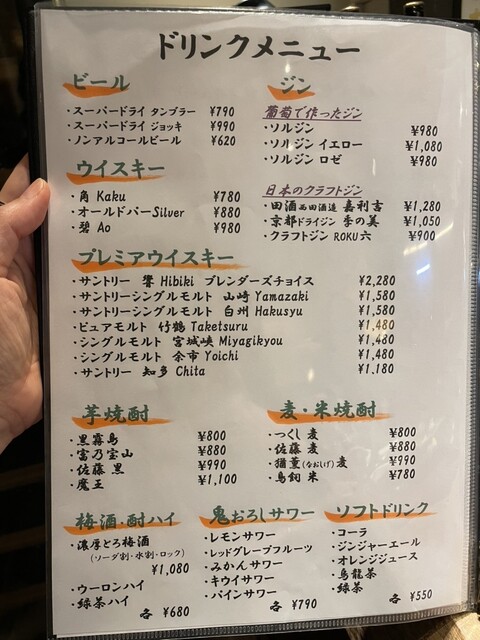 ドリンクメニュー
ビール
・スーパードライ タンブラー ¥790
・スーパードライ ジョッキ ¥990
・ノンアルコールビール ¥620
ウイスキー
・角 Kaku ¥780
・オールドパーSilver ¥880
・碧 Ao ¥980
ジン
葡萄で作ったジン
・ソルジン ¥980
・ソルジン イエロー ¥1,080
・ソルジン ロゼ ¥980
日本のクラフトジン
・田酒 西田酒造 嘉利吉 ¥1,280
・京都ドライジン 季の美 ¥1,050
・クラフトジン ROKU 六 ¥900
プレミアウイスキー
・サントリー 響 Hibiki ブレンダーズチョイス ¥2,280
・サントリーシングルモルト 山崎 Yamazaki ¥1,580
・サントリーシングルモルト 白州 Hakusyu ¥1,580
・ピュアモルト 竹鶴 Taketsuru ¥1,480
・シングルモルト 宮城峡 Miyagikyou ¥1,480
・シングルモルト 余市 Yoichi ¥1,480
・サントリー 知多 Chita ¥1.180
芋焼酎
・黒霧島 ¥800
・富乃宝山 ¥880
・佐藤 黒 ¥990
・魔王 ¥1,100
麦・米焼酎
・つくし 麦 ¥800
・佐藤 麦 ¥880
・猶薫(なおしげ)麦 ¥990
・鳥飼 米 ¥780
梅酒・酎ハイ
・濃厚とろ梅酒
(ソーダ割・水割・ロック)
¥1,080
・ウーロンハイ
・緑茶ハイ
各 ¥680
鬼おろしサワー
・レモンサワー
・レッドグレープフルーツ
・みかんサワー
・キウイサワー
・パインサワー
各 ¥790
ソフトドリンク
・コーラ
・ジンジャーエール
・オレンジジュース
・烏龍茶
・緑茶
各 ¥550